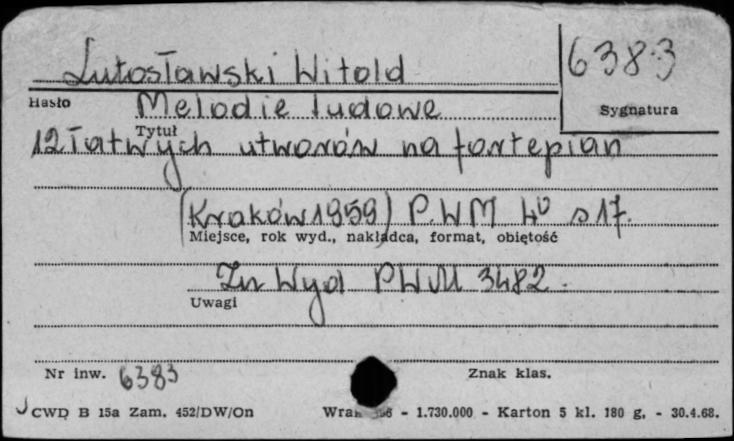 Lutosławski Witold
6383
Hasło
Melodie ludowe
Sygnatura
Tytuł
12 łatwych utworów na fortepian
(Kraków 1959) P.W.M 4º s 17.
Miejsce, rok wyd., nakładca, format, objętość
Zn Wyd PWM 3482.
Uwagi
Nr inw. 6383
Znak klas.
CWD B 15a Zam. 452/DW/On
- 1.730.000 - Karton 5 kl. 180 g. - 30.4.68.